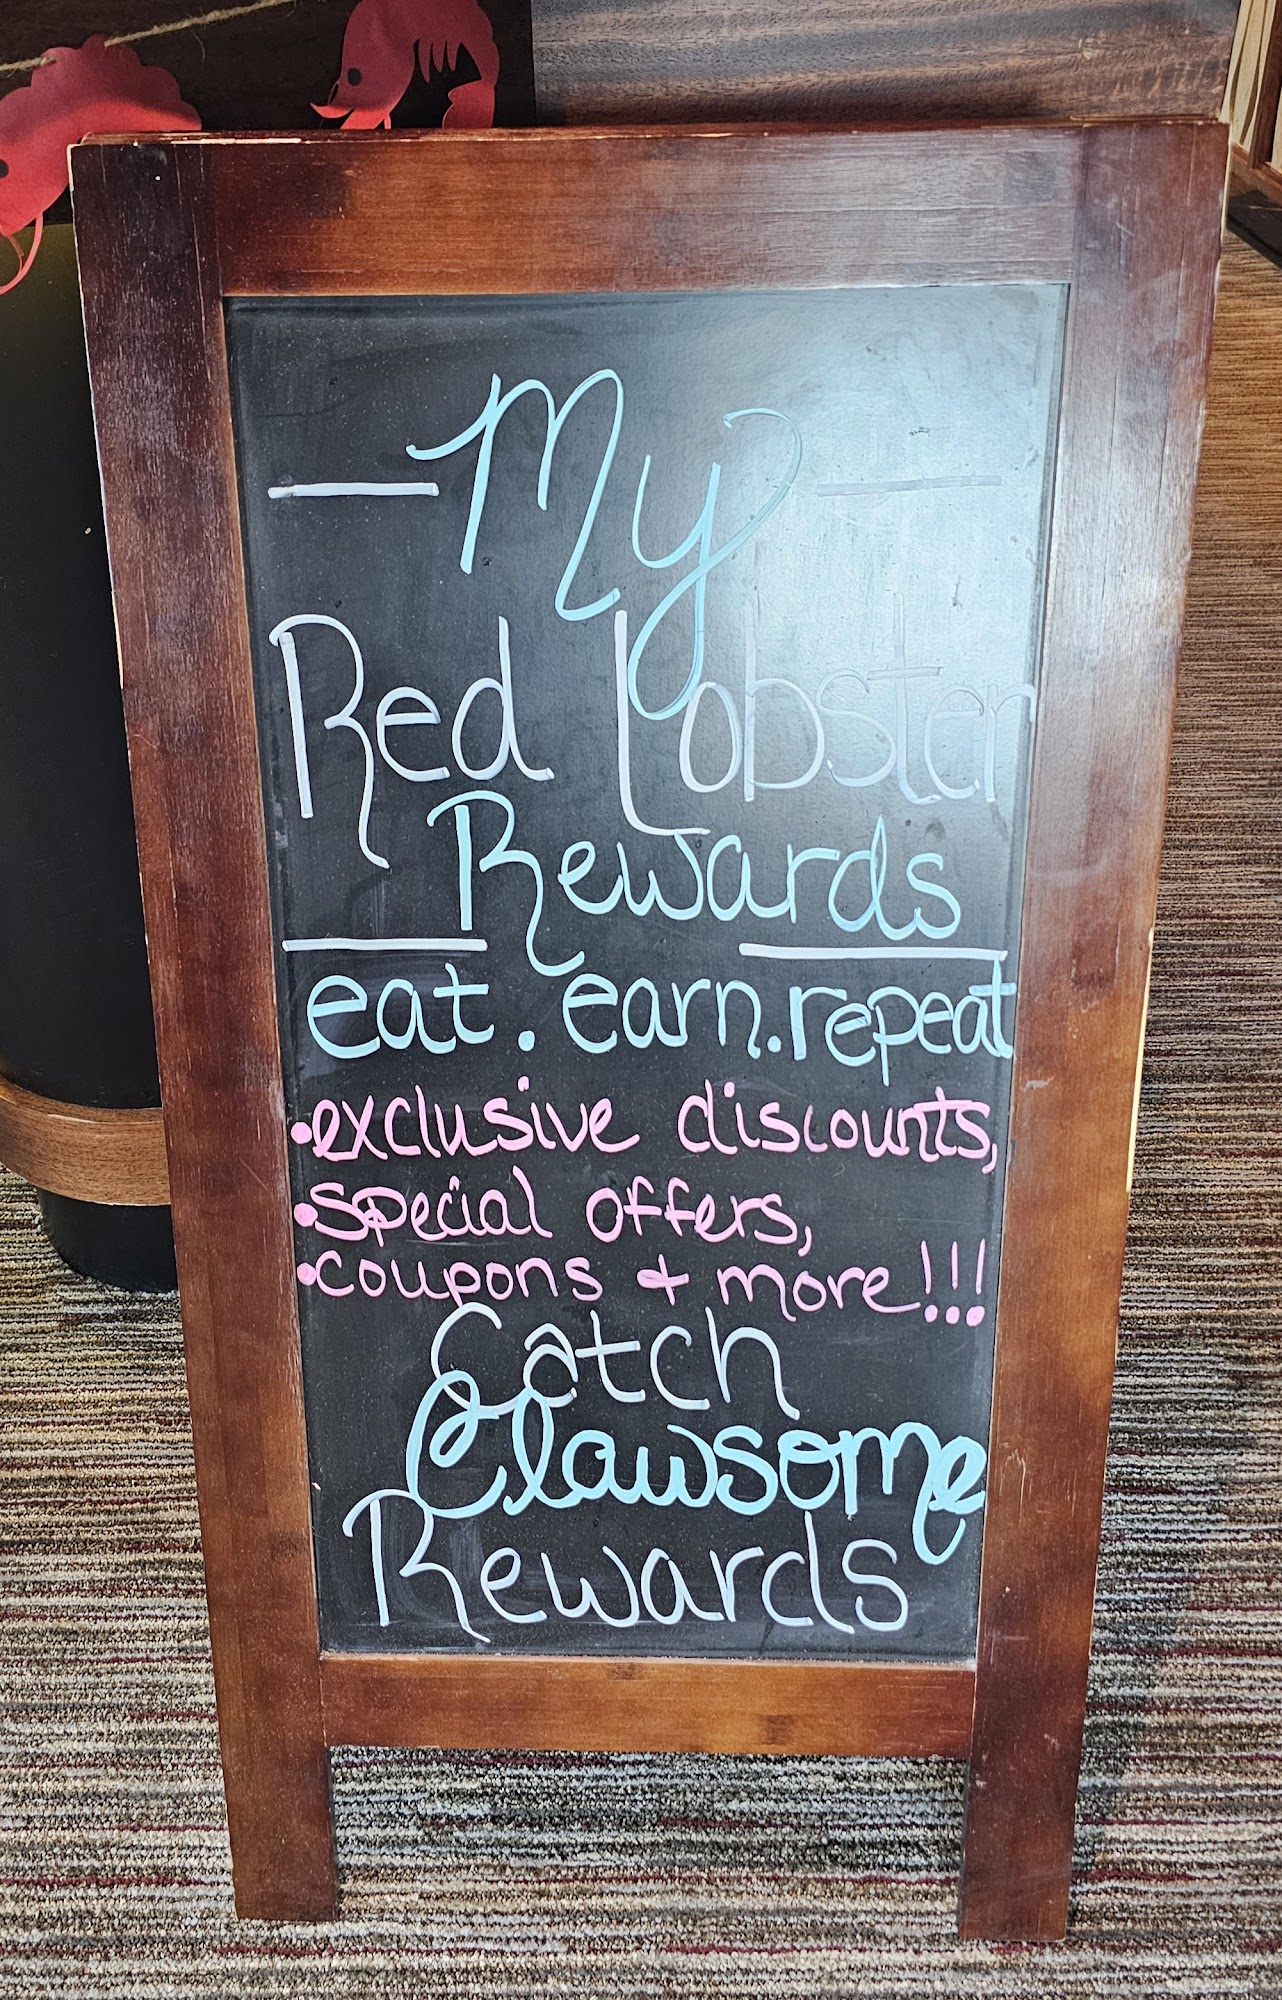 My
Red Lobster
Rewards
eat. earn. repeat
•exclusive discounts,
•special offers,
•coupons + more!!!
Catch
Clawsome
Rewards